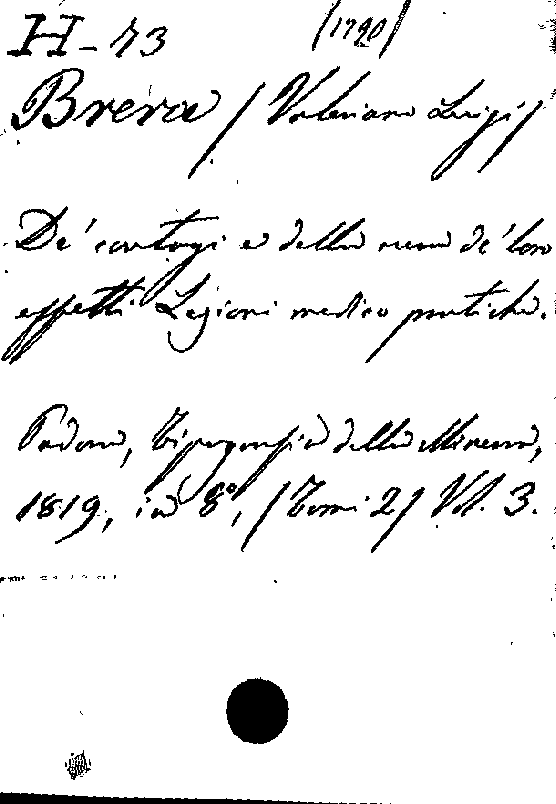 H-73 (1720)
Brera / Valeriano Luigi /
De' contagi e della cura de' loro
effetti Lezioni medico pratiche.
Padova, Tipografia della Minerva,
1819, in 8°, / Tomi 2 / Vol. 3.